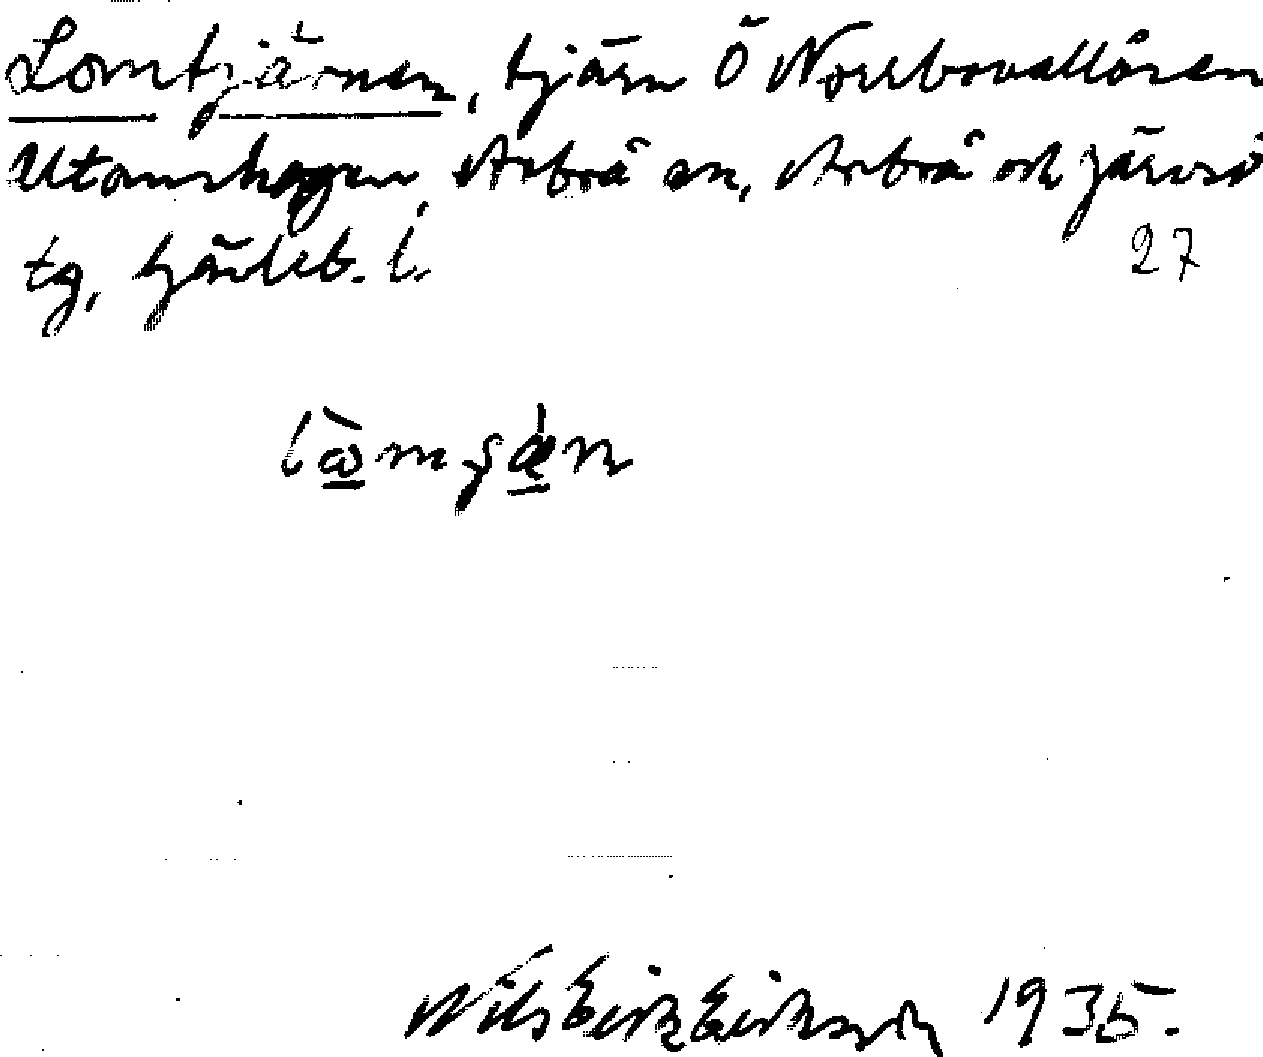 Lomtjärnen, tjärn Ö Norrbovallåsen
Utomskogen, Arbrå sn, Arbrå och Järvsö
tg, Gävleb. l.
27
Nils Erik Eriksson 1935.